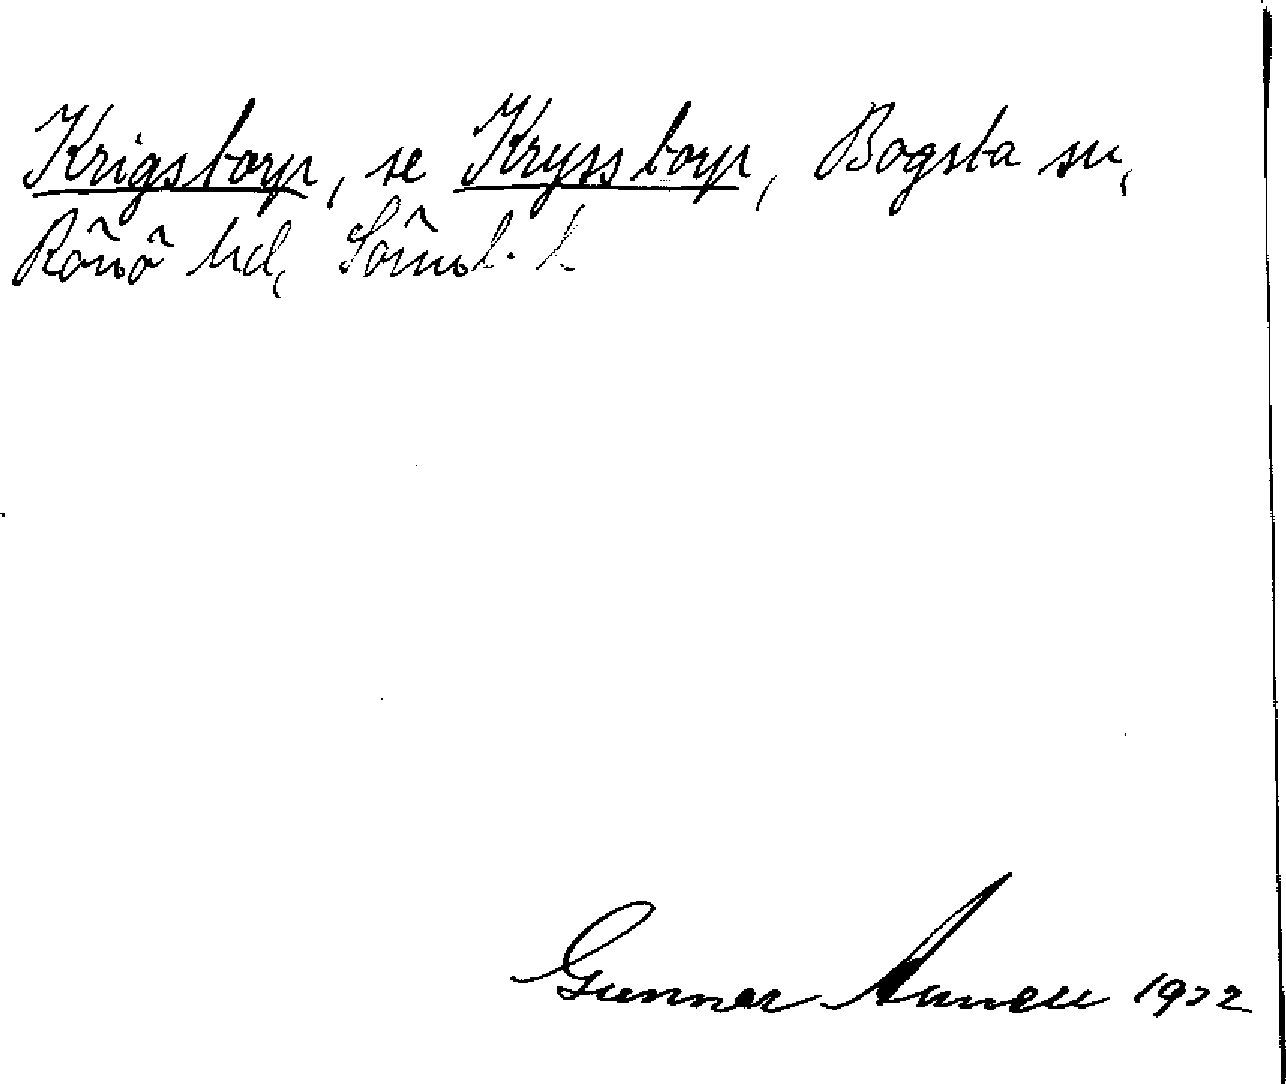 Krigstorp, se Krysstorp, Bogsta sn,
Rönö hd, Sörml. l.
Gunnar Annell 1922